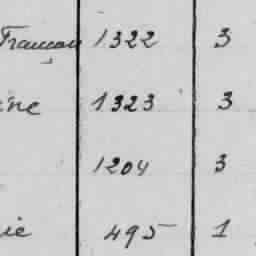 Français 1322 3
ine 1323 3
1204 3
ie 495 1